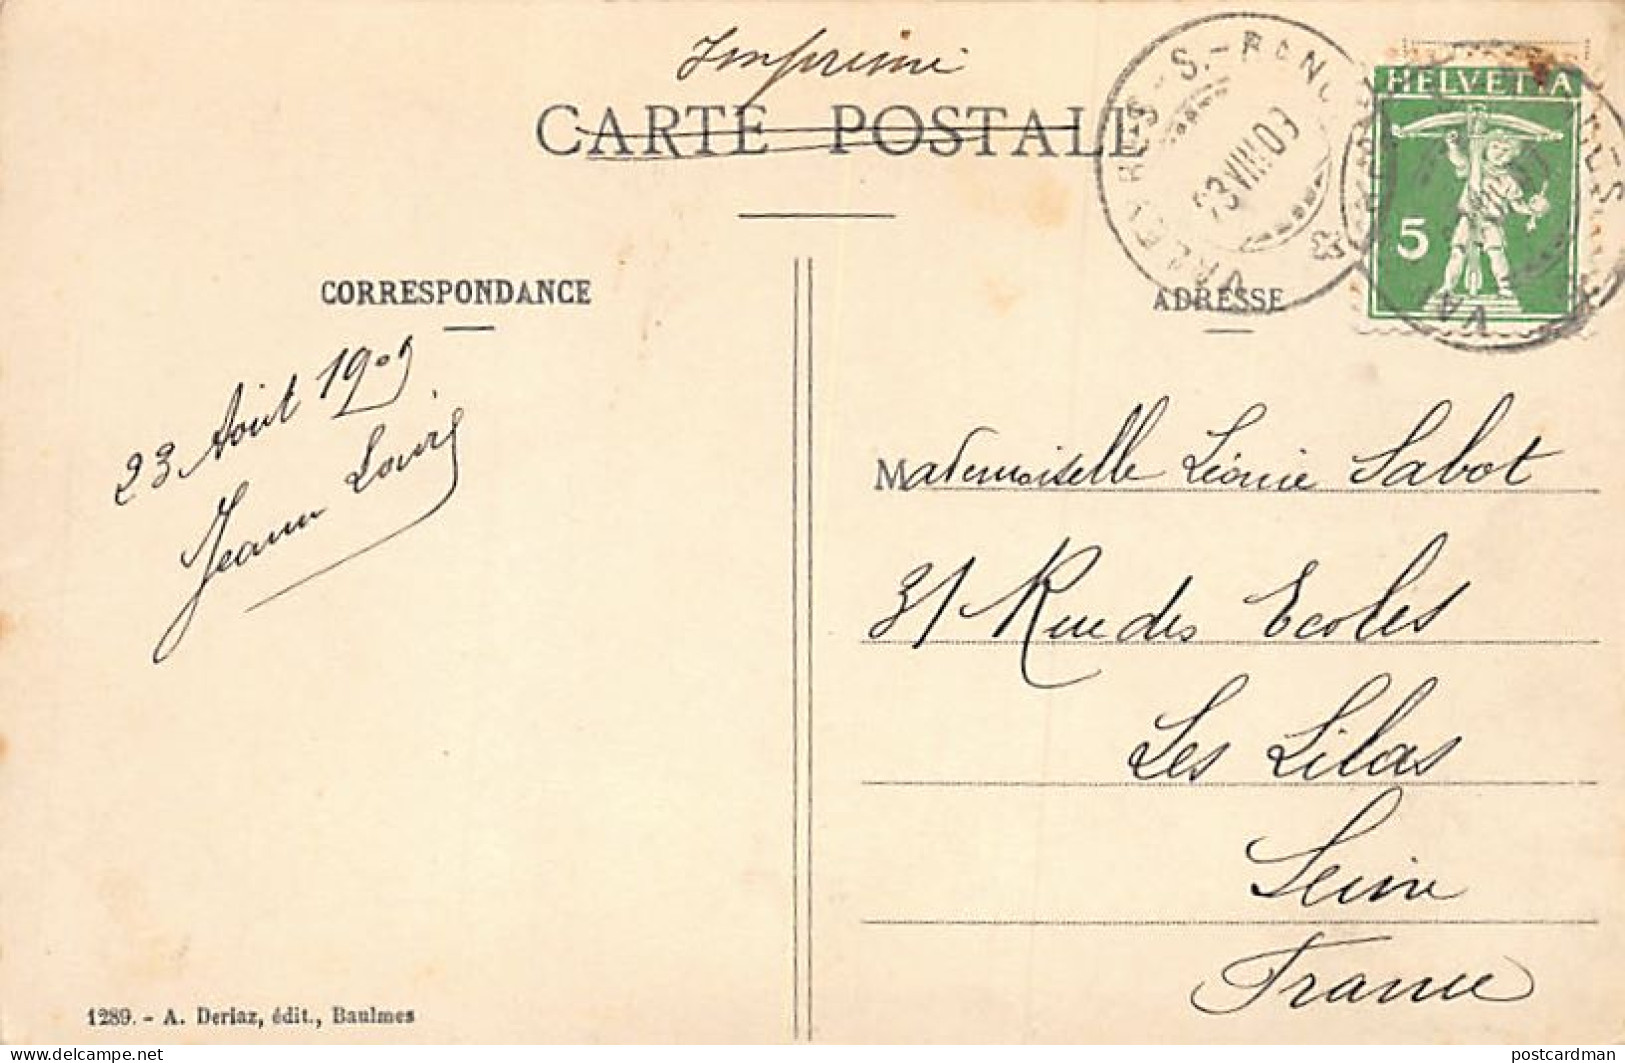 Imprimé
CARTE POSTALE
HELVETIA
5
23 VIII 09
CORRESPONDANCE
ADRESSE
23 Août 1909
Jeanne Louis
Mademoiselle Léonie Sabot
31 Rue des Ecoles
Les Lilas
Seine
France
1289. - A. Deriaz, édit., Baulmes
delcampe.net
postcardman